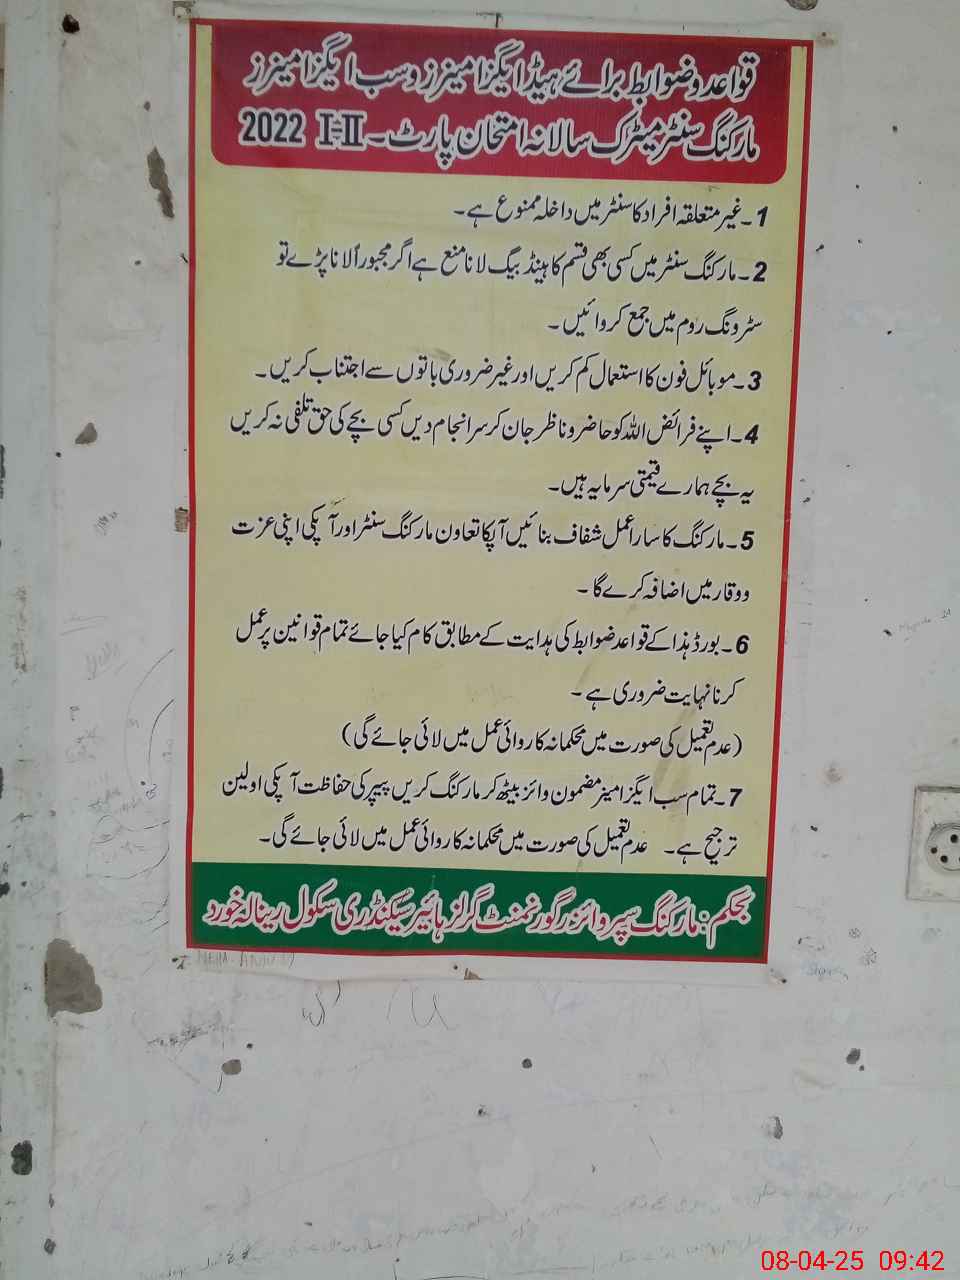 قواعد و ضوابط برائے ہیڈ ایگزامینرز و سب ایگزامینرز
مارکنگ سنٹر میٹرک سالانہ امتحان پارٹ۔ I-II 2022
1۔ غیر متعلقہ افراد کا سنٹر میں داخلہ ممنوع ہے۔
2۔ مارکنگ سنٹر میں کسی بھی قسم کا ہینڈ بیگ لانا منع ہے اگر مجبوراً لانا پڑے تو
سٹرونگ روم میں جمع کروائیں۔
3۔ موبائل فون کا استعمال کم کریں اور غیر ضروری باتوں سے اجتناب کریں۔
4۔ اپنے فرائض اللہ کو حاضر و ناظر جان کر سرانجام دیں کسی بچے کی حق تلفی نہ کریں
یہ بچے ہمارے قیمتی سرمایہ ہیں۔
5۔ مارکنگ کا سارا عمل شفاف بنائیں آپکا تعاون مارکنگ سنٹر اور آپکی اپنی عزت
و وقار میں اضافہ کرے گا۔
6۔ بورڈ ہذا کے قواعد ضوابط کی ہدایت کے مطابق کام کیا جائے تمام قوانین پر عمل
کرنا نہایت ضروری ہے۔
(عدم تعمیل کی صورت میں محکمانہ کاروائی عمل میں لائی جائے گی)
7۔ تمام سب ایگزامینر مضمون وائز بیٹھ کر مارکنگ کریں پیپر کی حفاظت آپکی اولین
ترجیح ہے۔ عدم تعمیل کی صورت میں محکمانہ کاروائی عمل میں لائی جائے گی۔
بحکم: مارکنگ سپروائزر گورنمنٹ گرلز ہائیر سیکنڈری سکول رینالہ خورد
08-04-25 09:42